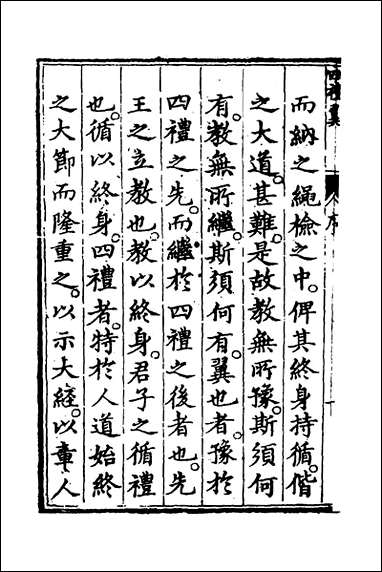 四禮翼
序
而納之繩檢之中。俾其終身持循。偕
之大道。甚難。是故教無所豫。斯須何
有。教無所繼。斯須何有。翼也者。豫於
四禮之先。而繼於四禮之後者也。先
王之立教也。教以終身。君子之循禮
也。循以終身。四禮者。特於人道始終
之大節而隆重之。以示大經。以章人